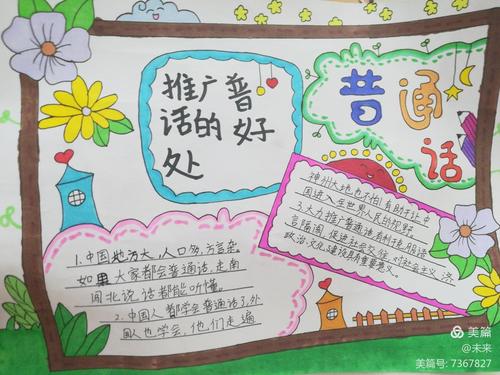 推广普
话的好
处
普通
话
1.中国地方大,人口多,方言杂
如果大家都会普通话,走南
闯北说话都能听懂。
2.中国人都学会普通话了,外
国人也学会,他们走遍
神州大地也不怕,有助于让中
国进入全世界人民的视野
3.大力推广普通话有利于克服语
言隔阂,促进社会交往,对社会主义
济
政治,文化建设具有重要意义。
美篇
@未来
美篇号: 7367827